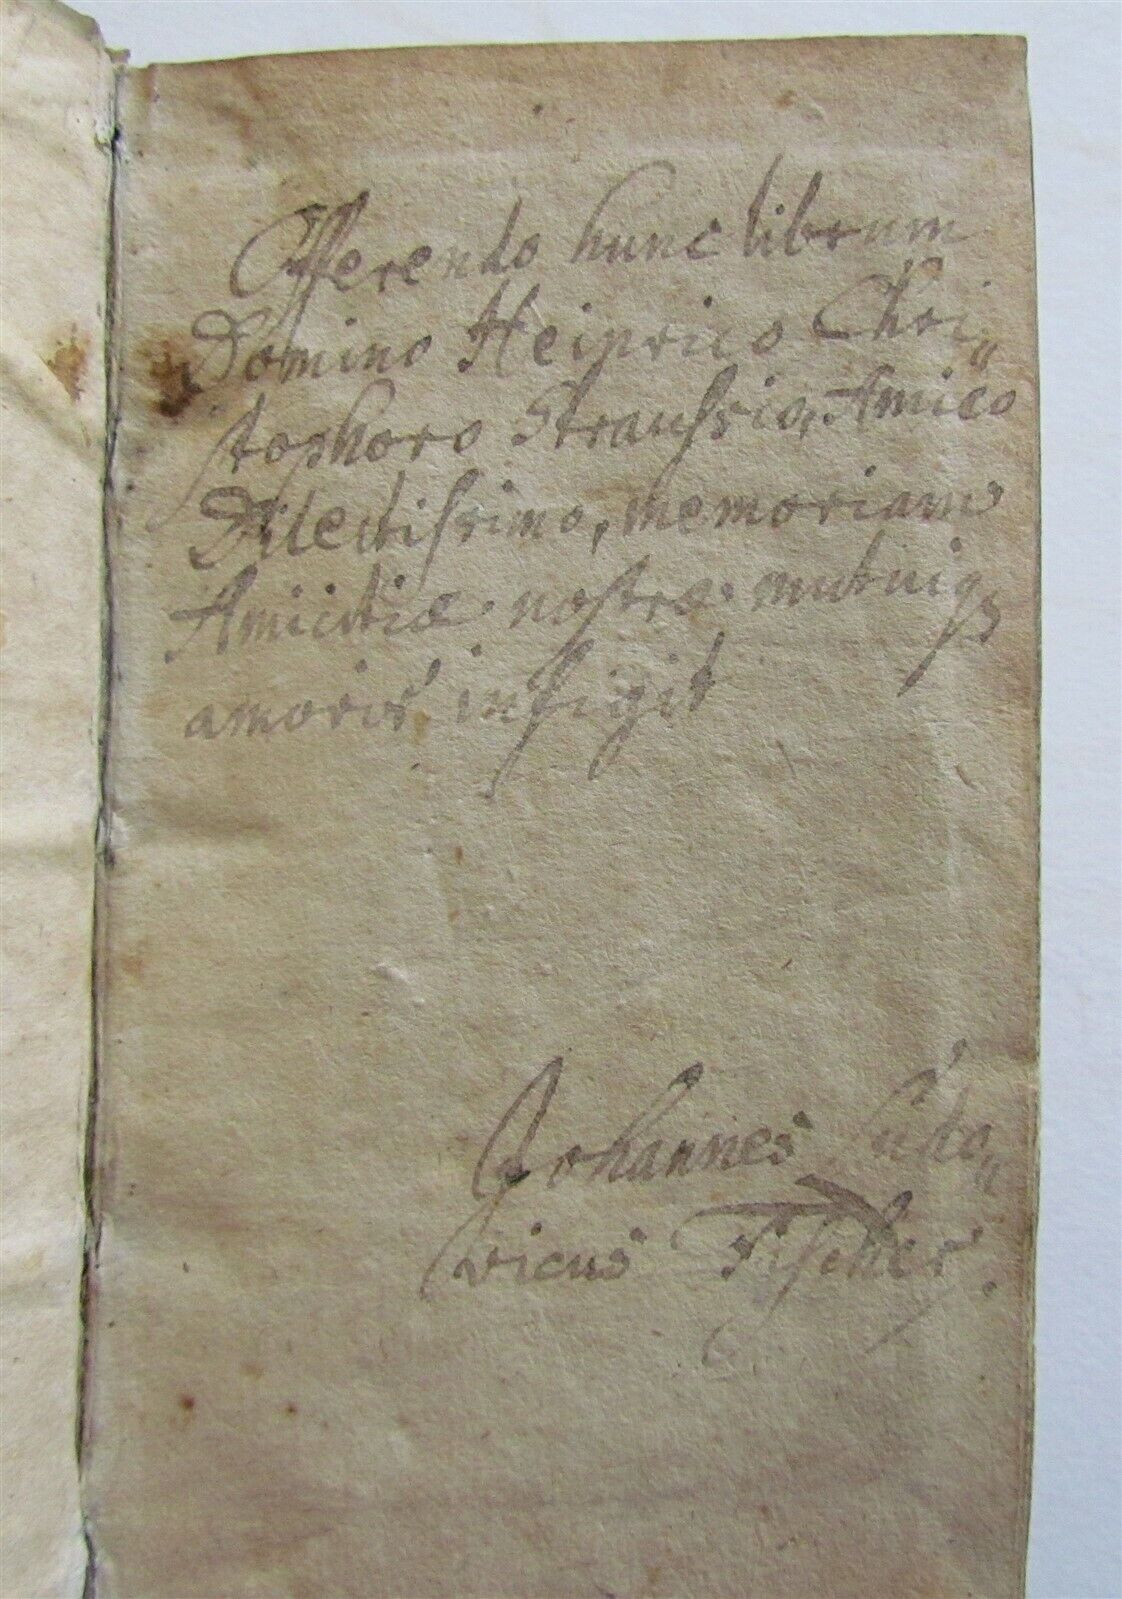 Offerendo hunc librum
Domino Heinrico Chri„
stophoro Straussio, Amico
Dilectissimo, memoriam
Amicitiæ nostræ mutuiq₃
amoris infigit
Johannes Ludo„
vicus Fischer.